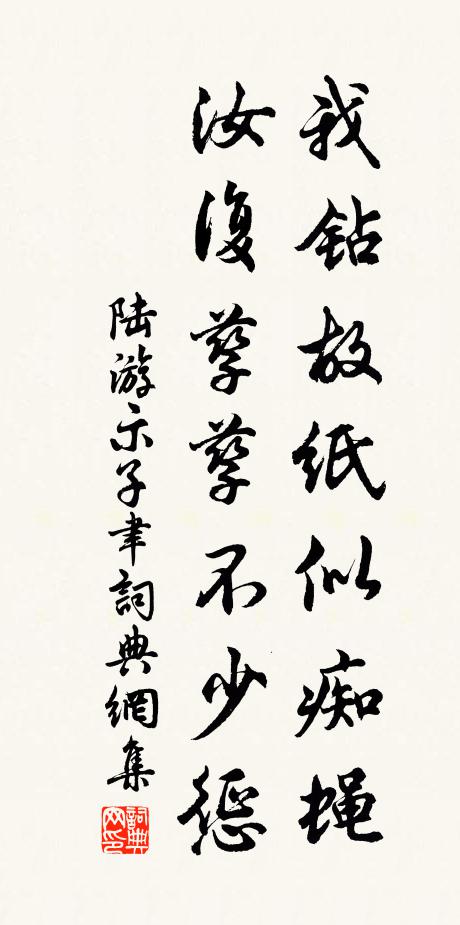 我钻故紙似痴蝇
汝復孳孳不少懲
陆游示子聿詞典網集
詞典
网印